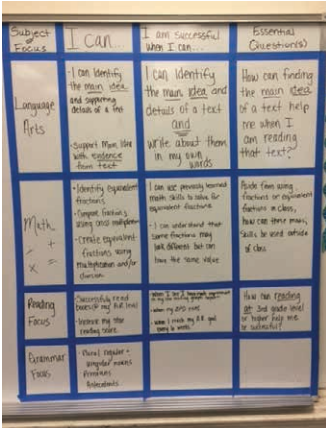 Subject
of
Focus
I can...
I am successful
when I can...
Essential
Question(s)
Language
Arts
· I can Identify
the main idea
and supporting
details of a text
· Support Main Idea
with evidence
from text
I can Identify
the main idea and
details of a text
and
write about them
in my own
words
How can finding
the main idea
of a text help
me when I
am reading
that text?
Math
- +
x =
· Identify equivalent
fractions
· Compare fractions
using cross multiplication
· Create equivalent
fractions using
multiplication and/or
division
I can use previously learned
math skills to solve for
equivalent fractions
· I can understand that
some fractions may
look different but can
have the same value
Aside from using
fractions or equivalent
fractions in class,
how can these main
skills be used outside
of class
Reading
Focus
· Successfully read
books @ my AR level
· Increase my star
reading score
· When I can
· When my
· When I reach my AR goal
every
How can reading
at 3rd grade level
or higher help me
be successful?
Grammar
Focus
· Plural regular +
irregular nouns
Pronouns
Antecedents